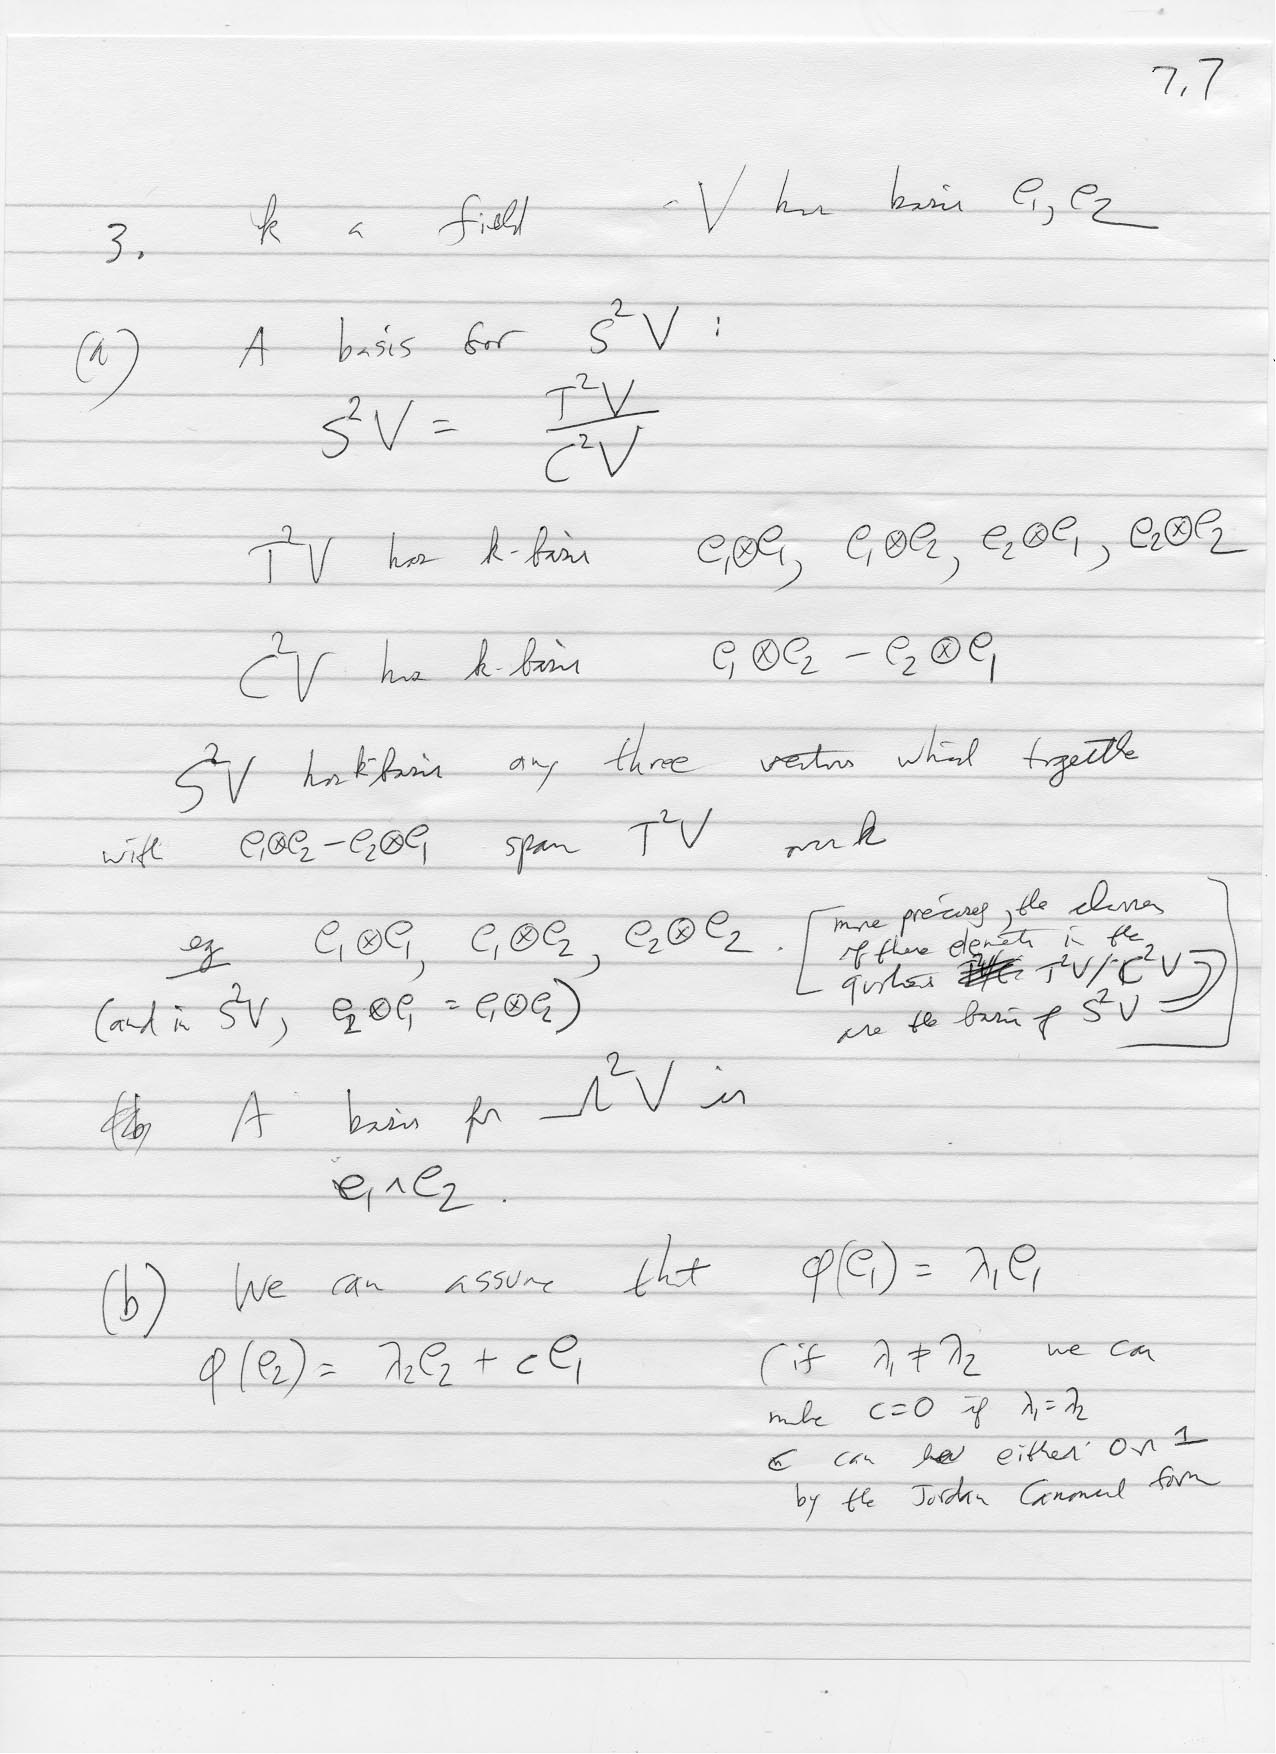 7.7
3. k a field - V has basis e₁, e₂
(a) A basis for S²V :
S²V = T²V / C²V
T²V has k-basis e₁⊗e₁, e₁⊗e₂, e₂⊗e₁, e₂⊗e₂
C²V has k-basis e₁⊗e₂ - e₂⊗e₁
S²V has k-basis any three vectors which together
with e₁⊗e₂ - e₂⊗e₁ span T²V over k
eg e₁⊗e₁, e₁⊗e₂, e₂⊗e₂.
(and in S²V, e₂⊗e₁ = e₁⊗e₂)
[more precisely, the classes
of these elements in the
quotient T²V/C²V
are the basis of S²V]
A basis for Λ²V is
e₁∧e₂.
(b) We can assume that φ(e₁) = λ₁e₁
φ(e₂) = λ₂e₂ + ce₁
(if λ₁ ≠ λ₂ we can
make c=0 if λ₁=λ₂
c can be either 0 or 1
by the Jordan Canonical form